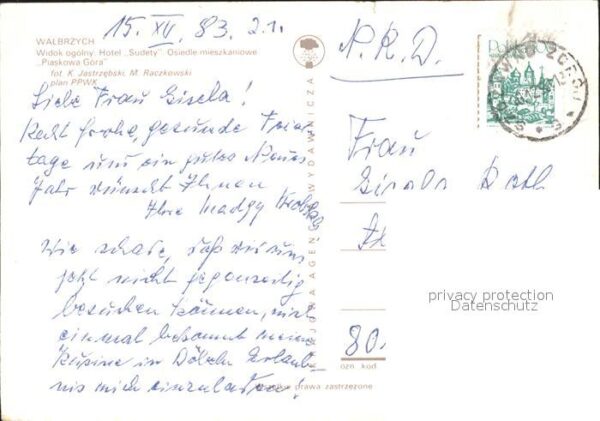 15. XII. 83. 21.
WAŁBRZYCH
Widok ogólny. Hotel „Sudety". Osiedle mieszkaniowe
„Piaskowa Góra"
fot. K. Jastrzębski, M. Raczkowski
plan PPWK
Liebe Frau Gisela!
Recht frohe, gesunde Feier
tage und ein gutes Neues
Jahr wünscht Ihnen
Ihre
Wie schade, daß wir uns
jetzt nicht gegenseitig
besuchen können, nicht
einmal bekommt meine
Kusine in Döbeln Erlaub-
nis mich einzuladen!
WYDAWNICZA
prawa zastrzeżone
N.R.D.
Frau
Gisela
80
ozn. kod
privacy protection
Datenschutz